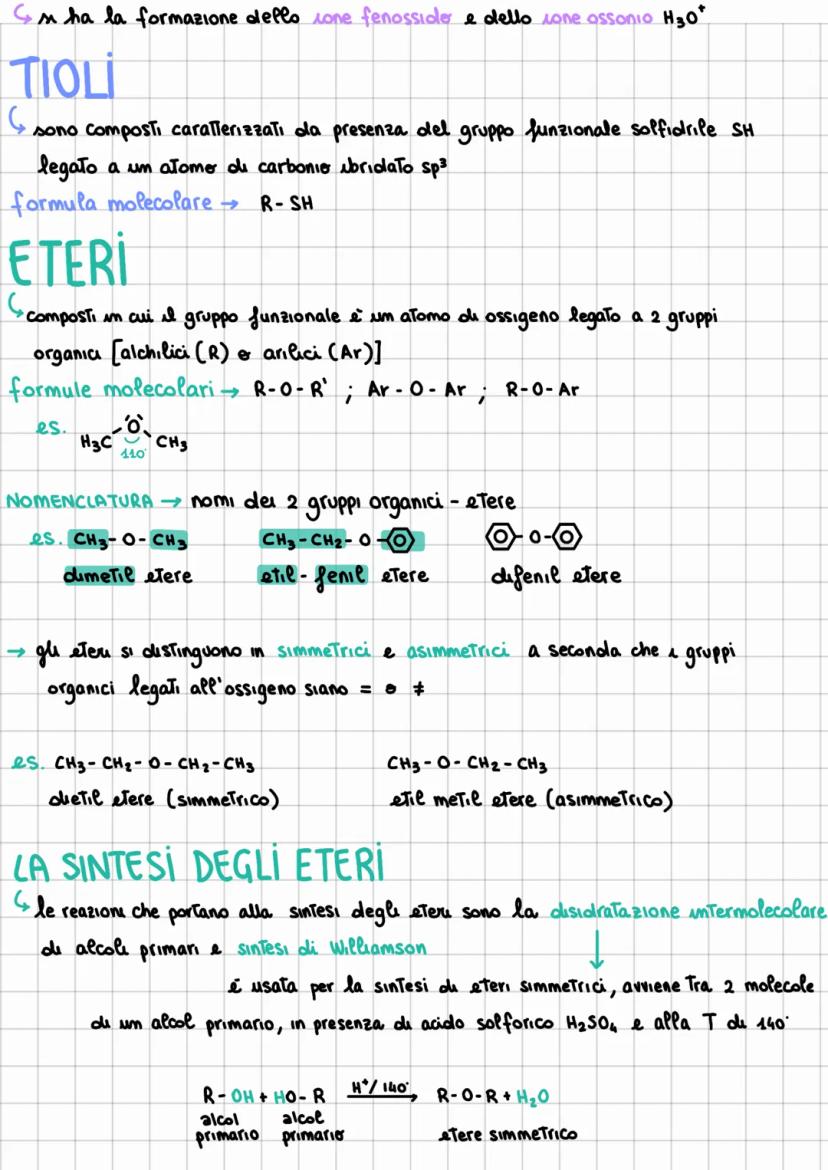 ↳ si ha la formazione dello ione fenossido e dello ione ossonio H₃O⁺
TIOLI
↳ sono composti caratterizzati da presenza del gruppo funzionale solfidrile SH
legato a un atomo di carbonio ibridato sp³
formula molecolare → R-SH
ETERI
↳ composti in cui il gruppo funzionale è un atomo di ossigeno legato a 2 gruppi
organici [alchilici (R) o arilici (Ar)]
formule molecolari → R-O-R' ; Ar-O-Ar ; R-O-Ar
es. H₃C O CH₃
110°
NOMENCLATURA → nomi dei 2 gruppi organici - etere
es. CH₃-O-CH₃ CH₃-CH₂-O- -O-
dimetil etere etil-fenil etere difenil etere
→ gli eteri si distinguono in simmetrici e asimmetrici a seconda che i gruppi
organici legati all'ossigeno siano = o ≠
es. CH₃-CH₂-O-CH₂-CH₃ CH₃-O-CH₂-CH₃
dietil etere (simmetrico) etil metil etere (asimmetrico)
LA SINTESI DEGLI ETERI
↳ le reazioni che portano alla sintesi degli eteri sono la disidratazione intermolecolare
di alcoli primari e sintesi di Williamson
è usata per la sintesi di eteri simmetrici, avviene tra 2 molecole
di un alcol primario, in presenza di acido solforico H₂SO₄ e alla T di 140°
R-OH + HO-R H⁺/140° → R-O-R + H₂O
alcol primario alcol primario etere simmetrico